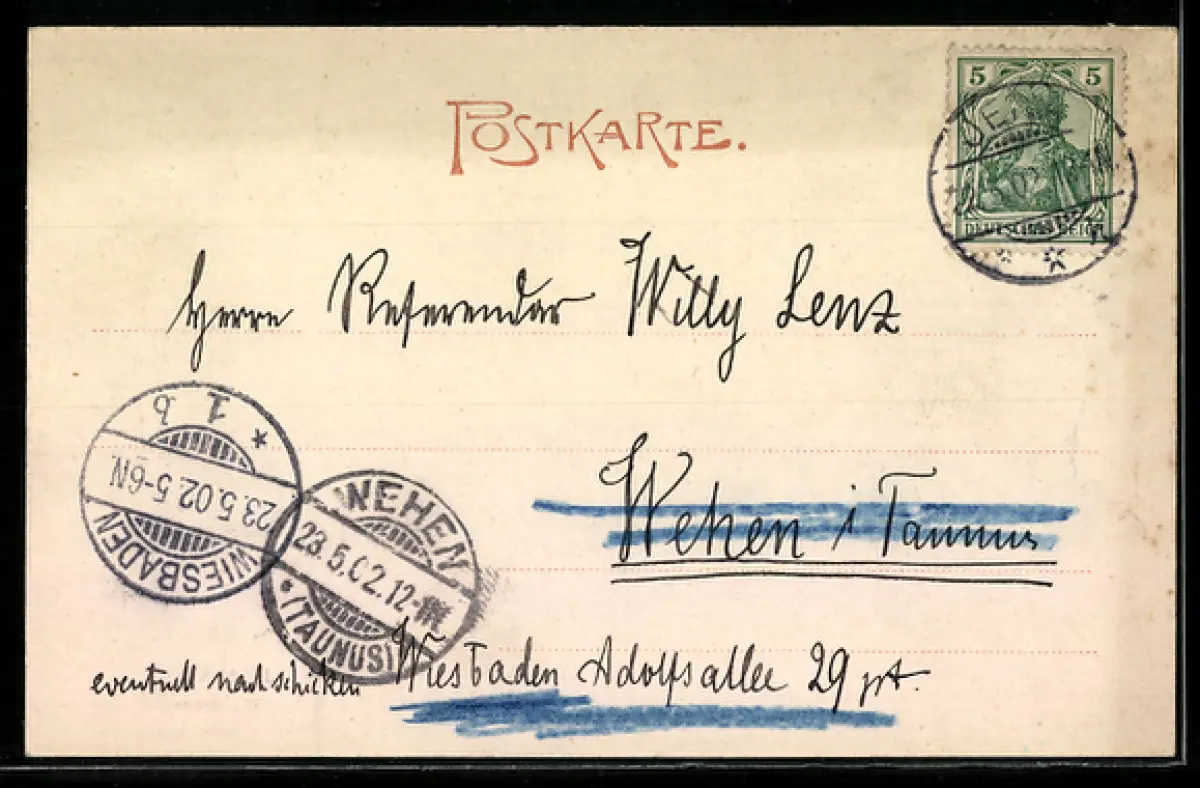 POSTKARTE.
5 5
DEUTSCHES REICH
Herrn Referendar Willy Lenz
1 b
23.5.02.5-6N.
WIESBADEN
WEHEN
23.5.02.12-
*(TAUNUS)
Wehen i Taunus
eventuell nachschicken Wiesbaden Adolfsallee 29 pt.